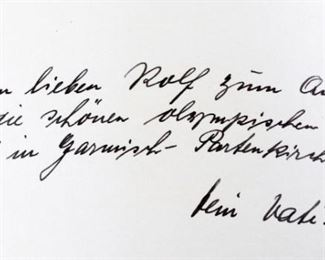 n lieben Rolf zum An
die schönen olympischen
in Garmisch-Partenkirch
Dein Vati.